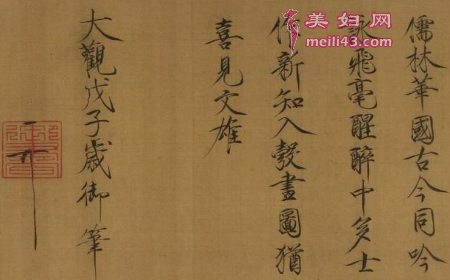 儒林華國古今同吟
詠飛毫醒醉中多士
作新知入彀畫圖猶
喜見文雄
大觀戊子歲御筆
美妇网
meili43.com